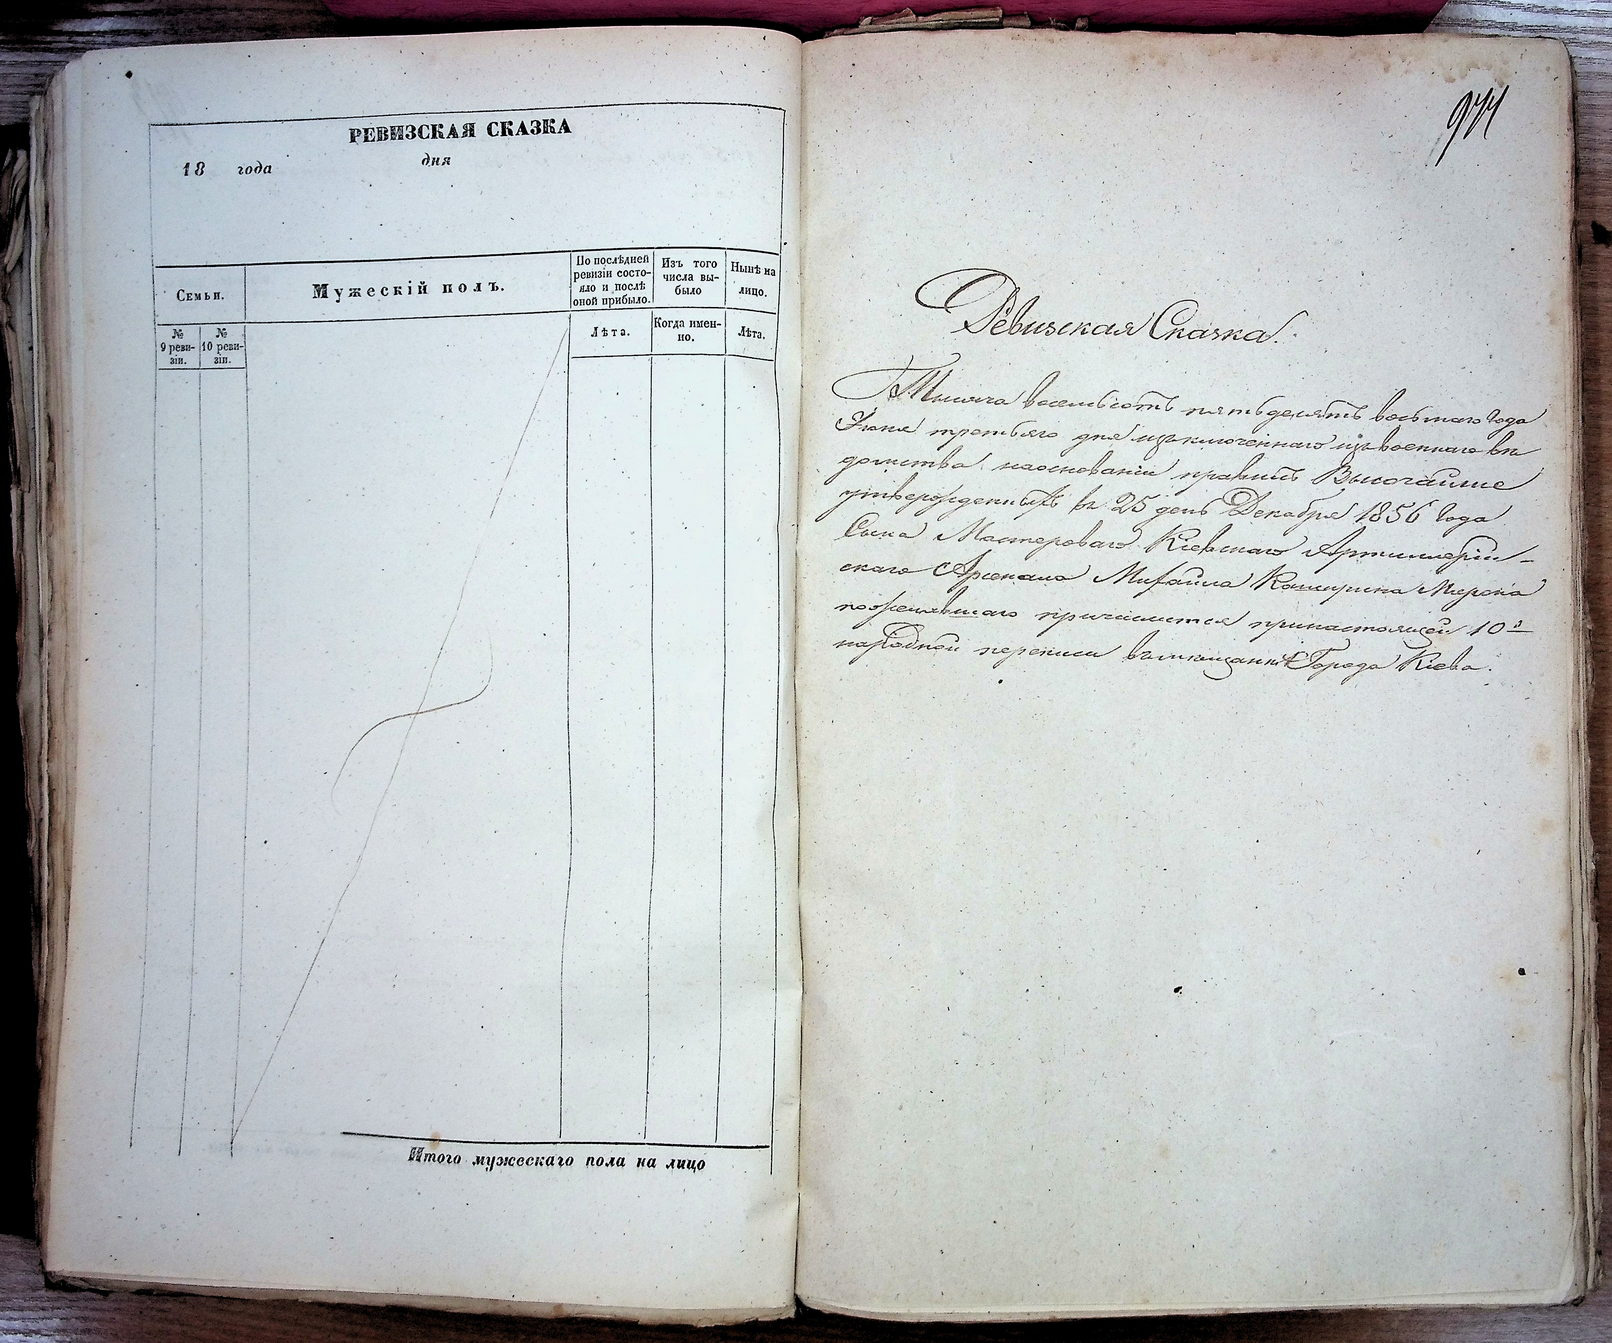 РЕВИЗСКАЯ СКАЗКА
18 года дня
Семьи.
Мужескій полъ.
По послѣдней
ревизіи состо-
яло и послѣ
оной прибыло.
Изъ того
числа вы-
было
Нынѣ на
лицо.
№
9 реви-
зіи.
№
10 реви-
зіи.
Лѣта.
Когда имен-
но.
Лѣта.
Итого мужескаго пола на лицо
Ревизская Сказка.
Тысяча восемьсотъ пятьдесятъ восьмаго Года
Іюня третьяго дня изключеннаго изъ военнаго вѣ
домства на основаніи правилъ Высочайше
утвержденныхъ въ 25 день Декабря 1856 Года
Сына Мастероваго Кіевскаго Артиллерій-
скаго Арсенала Михаила
причислится при настоящей 10й
народной переписи въ мѣщане Города Кіева.